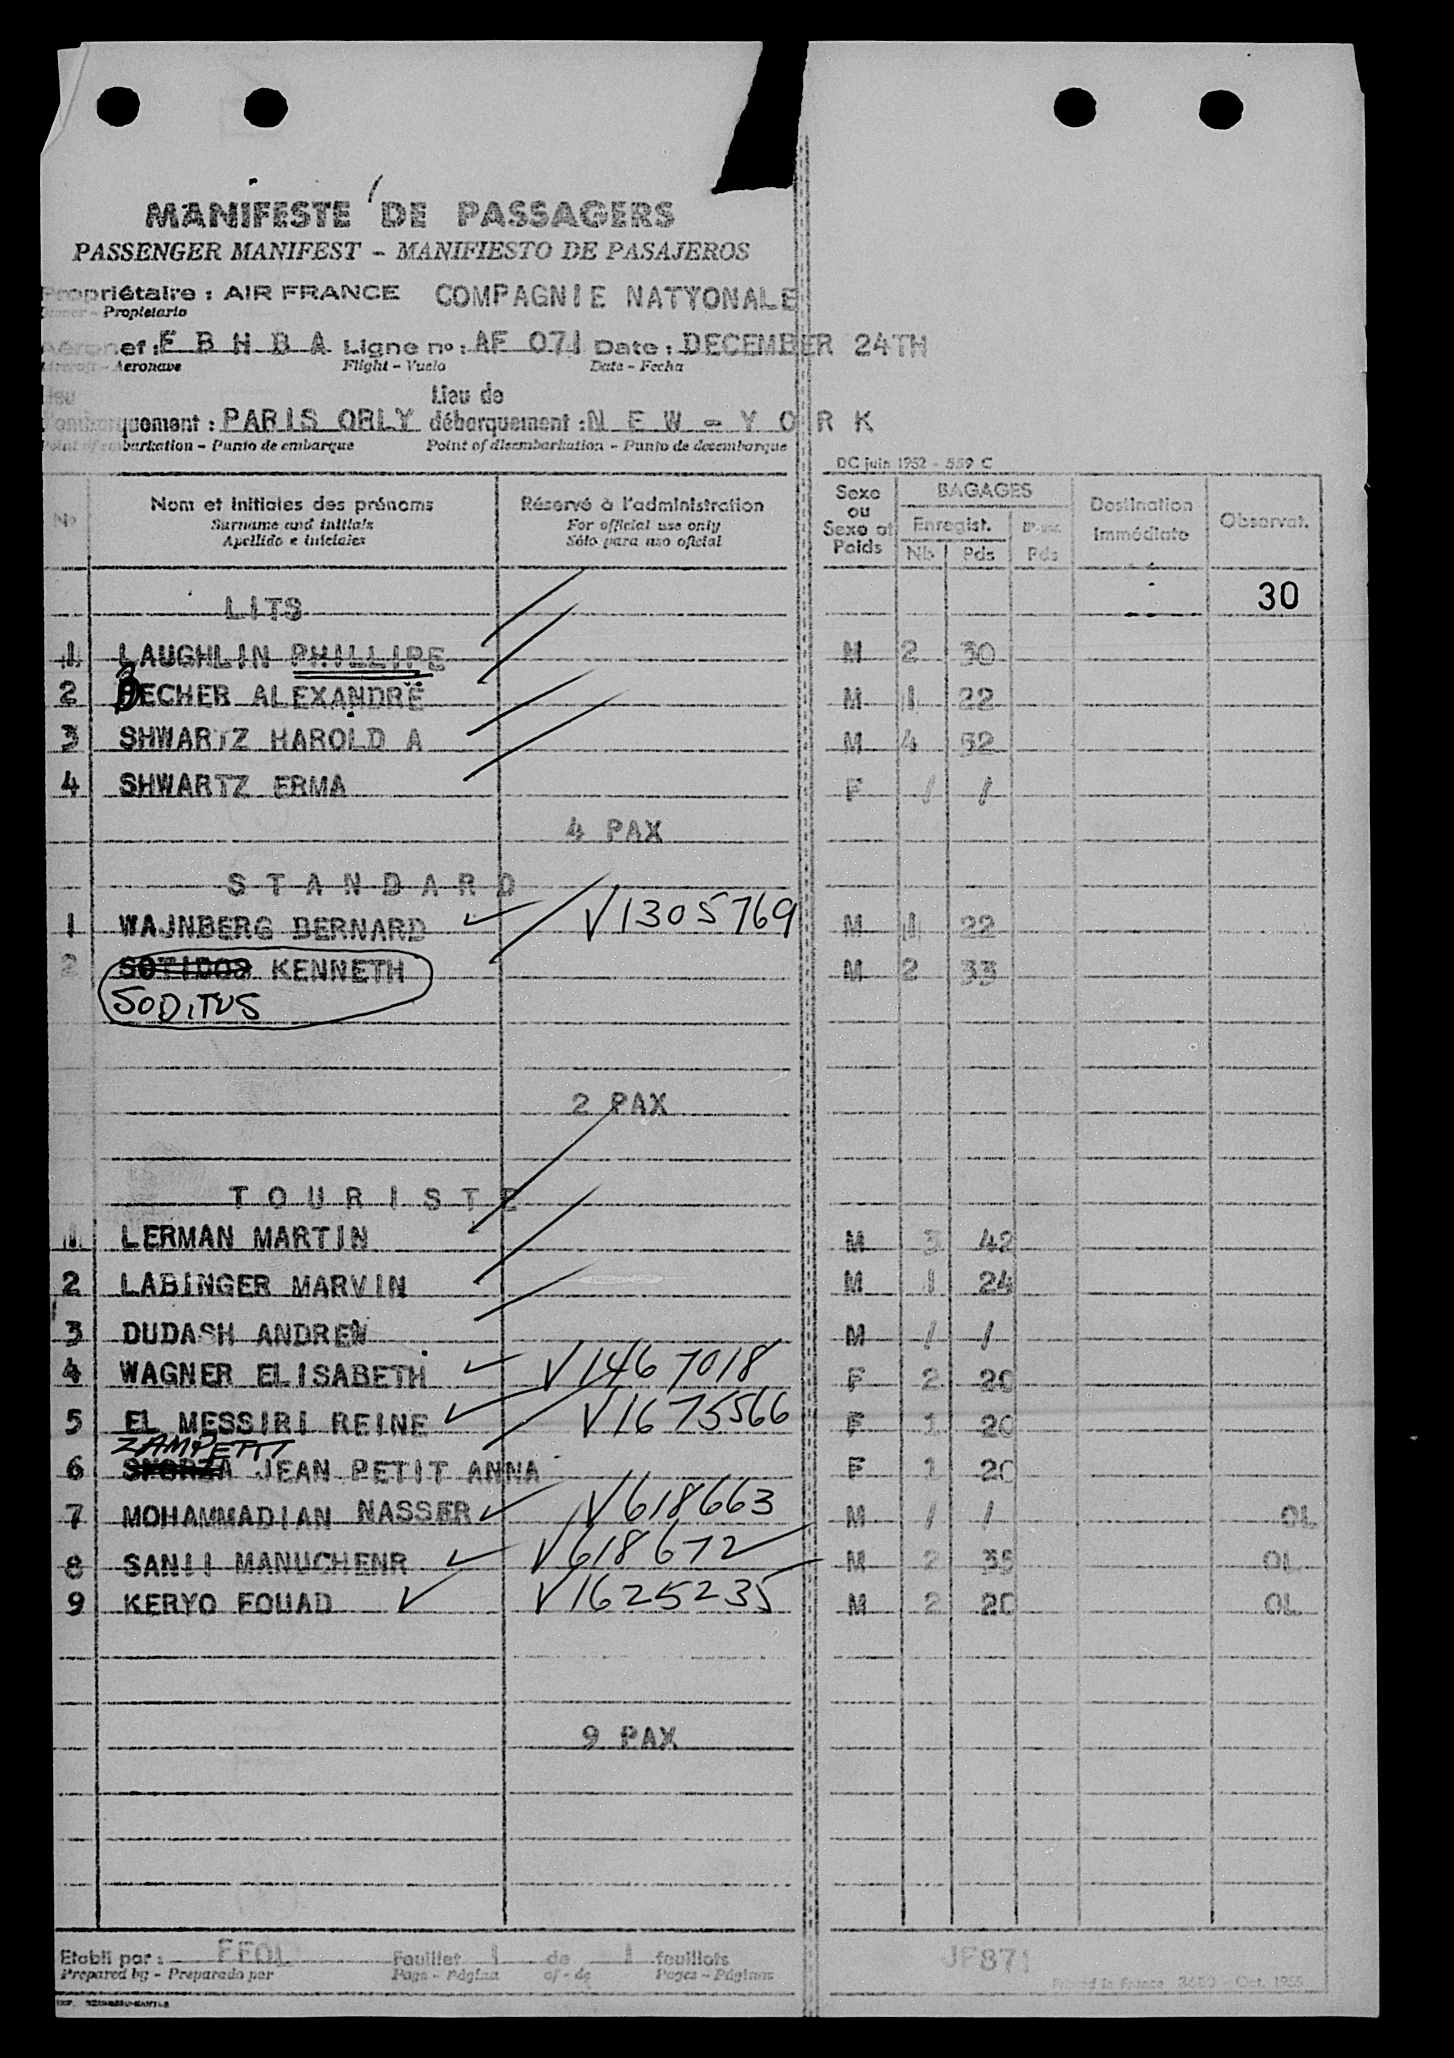 MANIFESTE DE PASSAGERS
PASSENGER MANIFEST - MANIFIESTO DE PASAJEROS
Propriétaire : AIR FRANCE COMPAGNIE NATYONALE
Owner - Propietario
Aéronef : F B H B A Ligne no : AF 071 Date : DECEMBER 24TH
Aircraft - Aeronave Flight - Vuelo Date - Fecha
Lieu Lieu de
d'embarquement : PARIS ORLY débarquement : N E W - Y O R K
Point of embarkation - Punto de embarque Point of disembarkation - Punto de desembarque
DC juin 1952 - 559 C
No Nom et initiales des prénoms Réservé à l'administration Sexe ou Sexe et Poids BAGAGES Destination Immédiate Observat.
Surname and initials For official use only Enregist.
Apellido e iniciales Sólo para uso oficial Nb Pds Pds
LITS 30
1 LAUGHLIN PHILLIPE M 2 30
2 BECHER ALEXANDRE M 1 22
3 SHWARTZ HAROLD A M 4 52
4 SHWARTZ ERMA F / /
4 PAX
S T A N D A R D
1 WAJNBERG BERNARD V1305769 M 1 22
2 SOTIDOS KENNETH M 2 33
SODITUS
2 PAX
T O U R I S T E
1 LERMAN MARTIN M 3 42
2 LABINGER MARVIN M 1 24
3 DUDASH ANDREW M / /
4 WAGNER ELISABETH V1467018 F 2 20
5 EL MESSIRI REINE V1675566 F 1 20
ZAMPETTI
6 SFORZA JEAN PETIT ANNA F 1 20
7 MOHAMMADIAN NASSER V618663 M / / OL
8 SANII MANUCHENR V618672 M 2 35 OL
9 KERYO FOUAD V1625235 M 2 20 OL
9 PAX
Etabli par : Feuillet 1 de 1 feuillets JF871
Prepared by - Preparado por Page - Página of - de Pages - Páginas